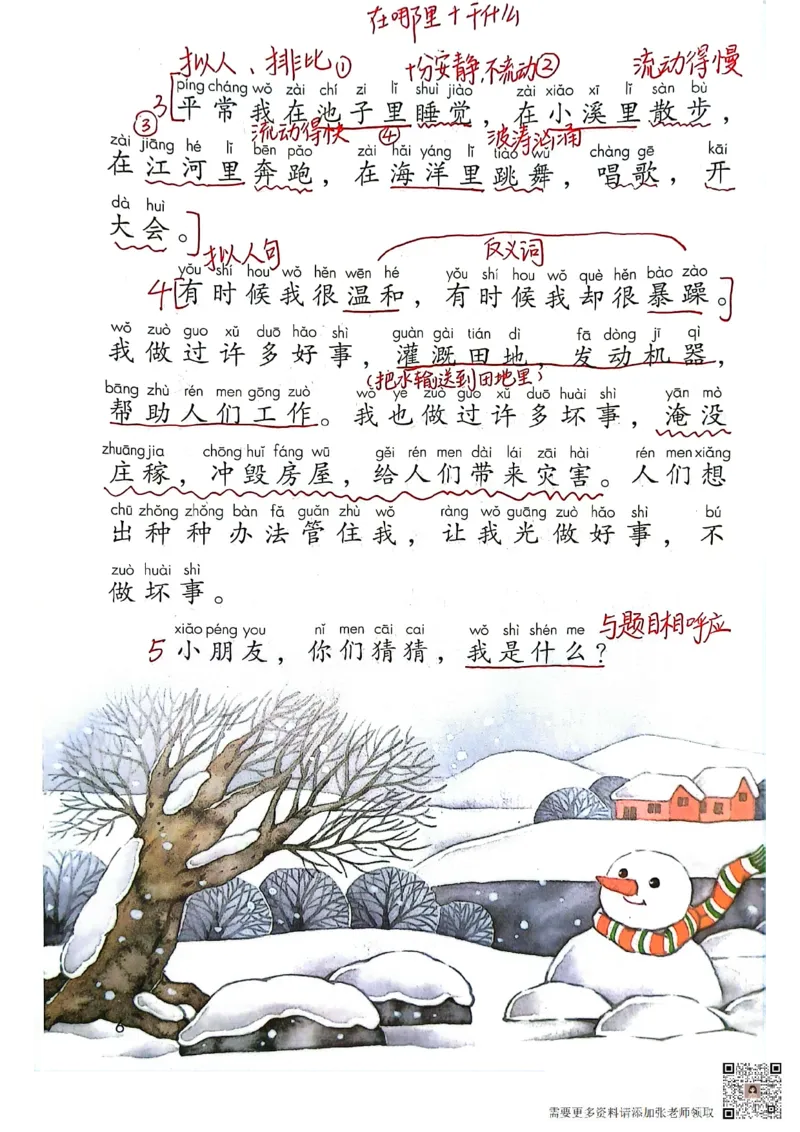 在哪里+干什么
拟人、排比① 十分安静,不流动② 流动得慢
píng cháng wǒ zài chí zi lǐ shuì jiào zài xiǎo xī lǐ sàn bù
3 平常我在池子里睡觉，在小溪里散步，
③ 流动得快 ④ 波涛汹涌
zài jiāng hé lǐ bēn pǎo zài hǎi yáng lǐ tiào wǔ chàng gē kāi
在江河里奔跑，在海洋里跳舞，唱歌，开
dà huì
大会。
拟人句 反义词
yǒu shí hou wǒ hěn wēn hé yǒu shí hou wǒ què hěn bào zào
4 有时候我很温和，有时候我却很暴躁。
wǒ zuò guo xǔ duō hǎo shì guàn gài tián dì fā dòng jī qì
我做过许多好事，灌溉田地，发动机器，
(把水输送到田地里)
bāng zhù rén men gōng zuò wǒ yě zuò guo xǔ duō huài shì yān mò
帮助人们工作。我也做过许多坏事，淹没
zhuāng jia chōng huǐ fáng wū gěi rén men dài lái zāi hài rén men xiǎng
庄稼，冲毁房屋，给人们带来灾害。人们想
chū zhǒng zhǒng bàn fǎ guǎn zhù wǒ ràng wǒ guāng zuò hǎo shì bú
出种种办法管住我，让我光做好事，不
zuò huài shì
做坏事。
xiǎo péng you nǐ men cāi cai wǒ shì shén me 与题目相呼应
5 小朋友，你们猜猜，我是什么？
6
需要更多资料请添加张老师领取